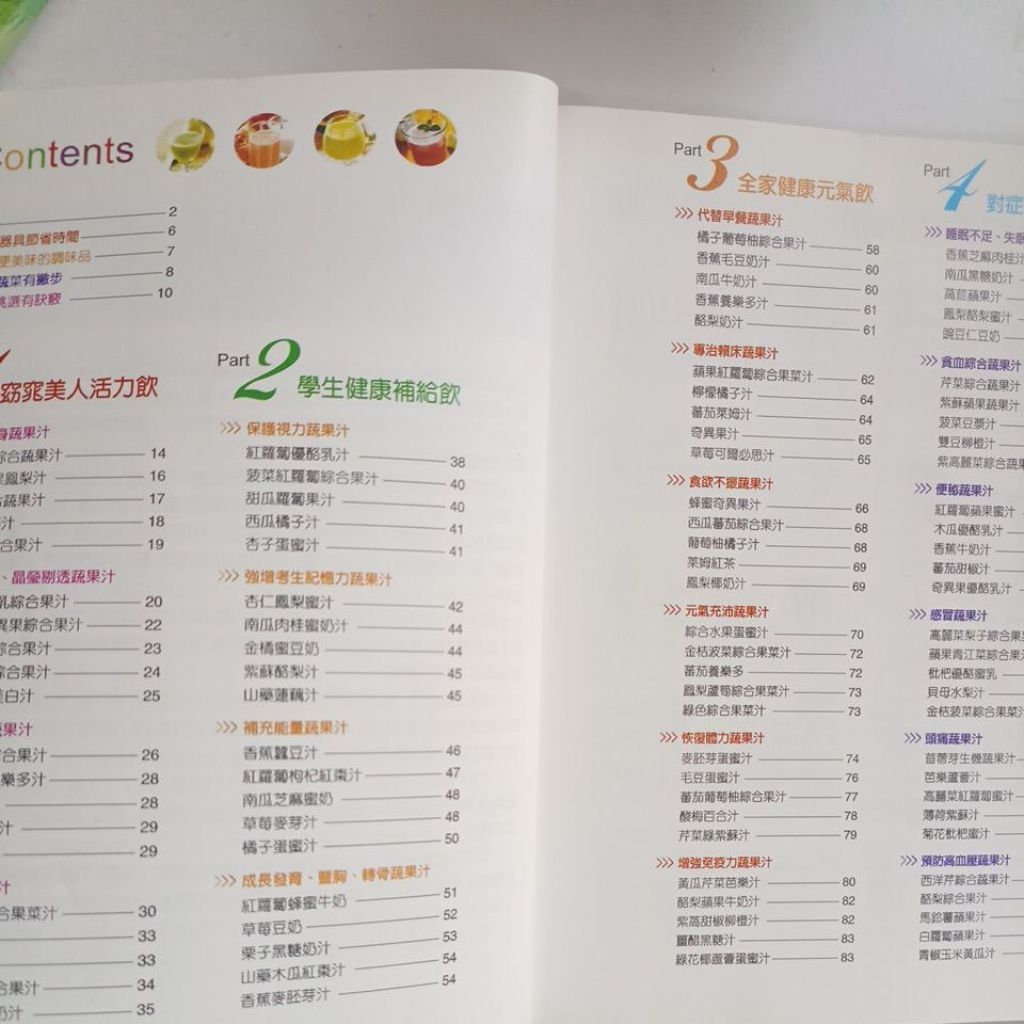 Contents
2
器具節省時間 6
更美味的調味品 7
蔬菜有撇步 8
挑選有訣竅 10
窈窕美人活力飲
身蔬果汁
綜合蔬果汁 14
果鳳梨汁 16
合蔬果汁 17
汁 18
合果汁 19
、晶瑩剔透蔬果汁
乳綜合果汁 20
異果綜合果汁 22
綜合果汁 23
綜合果汁 24
美白汁 25
蔬果汁
合果汁 26
樂多汁 28
28
汁 29
29
汁
合果菜汁 30
33
33
合果汁 34
奶汁 35
Part 2 學生健康補給飲
>>> 保護視力蔬果汁
紅蘿蔔優酪乳汁 38
菠菜紅蘿蔔綜合果汁 40
甜瓜蘿蔔果汁 40
西瓜橘子汁 41
杏子蛋蜜汁 41
>>> 強增考生記憶力蔬果汁
杏仁鳳梨蜜汁 42
南瓜肉桂蜜奶汁 44
金橘蜜豆奶 44
紫蘇酪梨汁 45
山藥蓮藕汁 45
>>> 補充能量蔬果汁
香蕉蠶豆汁 46
紅蘿蔔枸杞紅棗汁 47
南瓜芝麻蜜奶 48
草莓麥芽汁 48
橘子蛋蜜汁 50
>>> 成長發育、豐胸、轉骨蔬果汁
紅蘿蔔蜂蜜牛奶 51
草莓豆奶 52
栗子黑糖奶汁 53
山藥木瓜紅棗汁 54
香蕉麥胚芽汁 54
Part 3 全家健康元氣飲
>>> 代替早餐蔬果汁
橘子葡萄柚綜合果汁 58
香蕉毛豆奶汁 60
南瓜牛奶汁 60
香蕉養樂多汁 61
酪梨奶汁 61
>>> 專治賴床蔬果汁
蘋果紅蘿蔔綜合果菜汁 62
檸檬橘子汁 64
蕃茄萊姆汁 64
奇異果汁 65
草莓可爾必思汁 65
>>> 食欲不振蔬果汁
蜂蜜奇異果汁 66
西瓜蕃茄綜合果汁 68
葡萄柚橘子汁 68
萊姆紅茶 69
鳳梨椰奶汁 69
>>> 元氣充沛蔬果汁
綜合水果蛋蜜汁 70
金桔波菜綜合果菜汁 72
蕃茄養樂多 72
鳳梨蘆筍綜合果菜汁 73
綠色綜合果菜汁 73
>>> 恢復體力蔬果汁
麥胚芽蛋蜜汁 74
毛豆蛋蜜汁 76
蕃茄葡萄柚綜合果汁 77
酸梅百合汁 78
芹菜綠紫蘇汁 79
>>> 增強免疫力蔬果汁
黃瓜芹菜芭樂汁 80
酪梨蘋果牛奶汁 82
紫高甜椒柳橙汁 82
薑醋黑糖汁 83
綠花椰蘆薈蛋蜜汁 83
Part 4 對症
>>> 睡眠不足、失眠
香蕉芝麻肉桂汁
南瓜黑糖奶汁
萵苣蘋果汁
鳳梨酪梨蜜汁
豌豆仁豆奶
>>> 貧血綜合蔬果汁
芹菜綜合蔬果汁
紫蘇蘋果蔬果汁
菠菜豆漿汁
雙豆柳橙汁
紫高麗菜綜合蔬果
>>> 便祕蔬果汁
紅蘿蔔蘋果蜜汁
木瓜優酪乳汁
香蕉牛奶汁
蕃茄甜椒汁
奇異果優酪乳汁
>>> 感冒蔬果汁
高麗菜梨子綜合果
蘋果青江菜綜合果
枇杷優酪蜜乳
貝母水梨汁
金桔菠菜綜合果菜汁
>>> 頭痛蔬果汁
苜蓿芽生機蔬果汁
芭樂蘆薈汁
高麗菜紅蘿蔔蜜汁
薄荷紫蘇汁
菊花枇杷蜜汁
>>> 預防高血壓蔬果汁
西洋芹綜合蔬果汁
酪梨綜合果汁
馬鈴薯蘋果汁
白蘿蔔蘋果汁
青椒玉米黃瓜汁